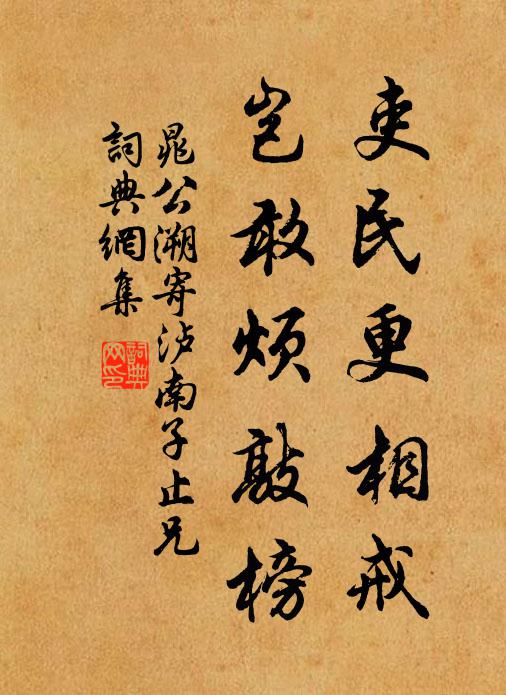 吏民更相戒
岂敢烦敲榜
晁公溯寄泸南子止兄
詞典網集
詞典網印